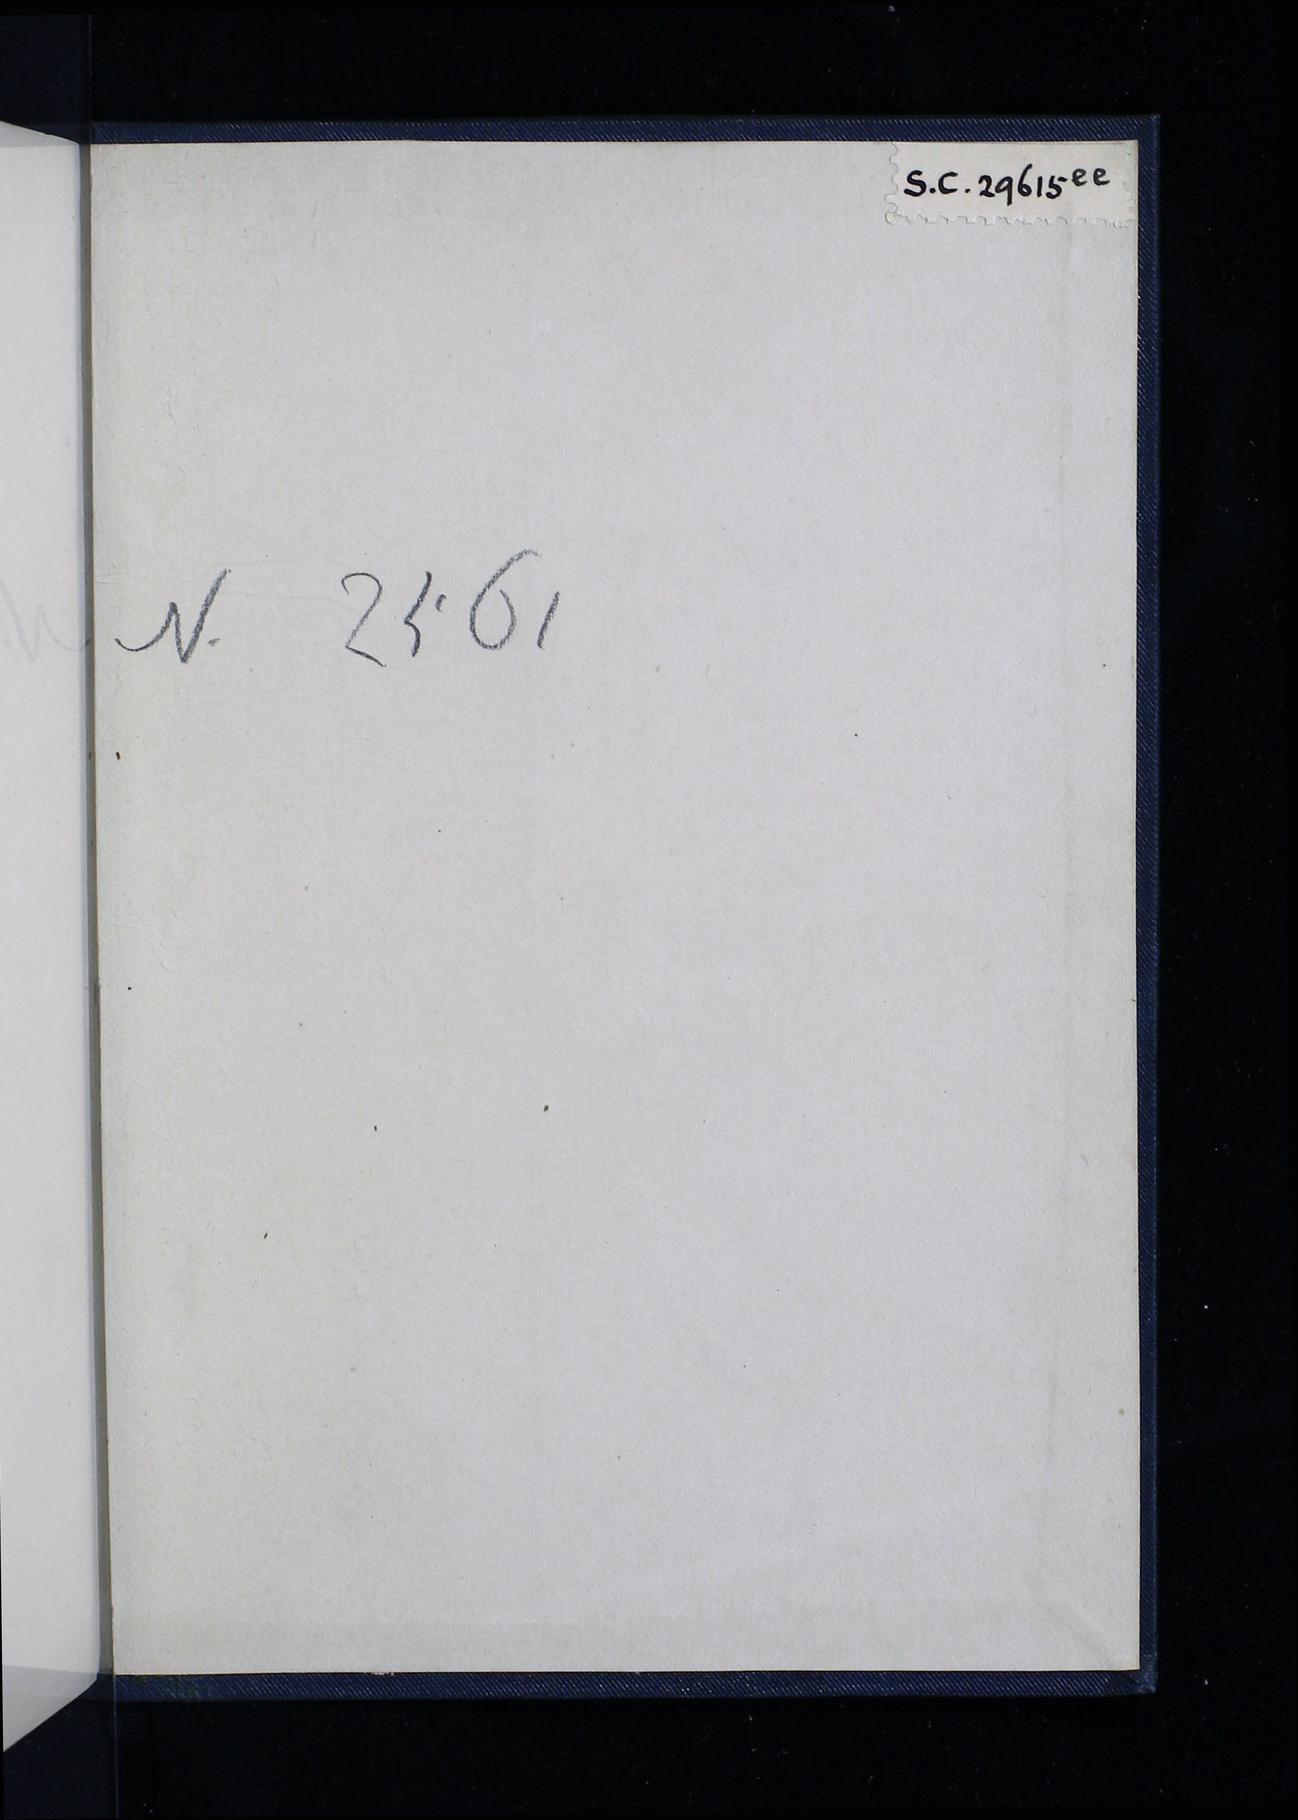 S.C. 29615ee
N. 2561